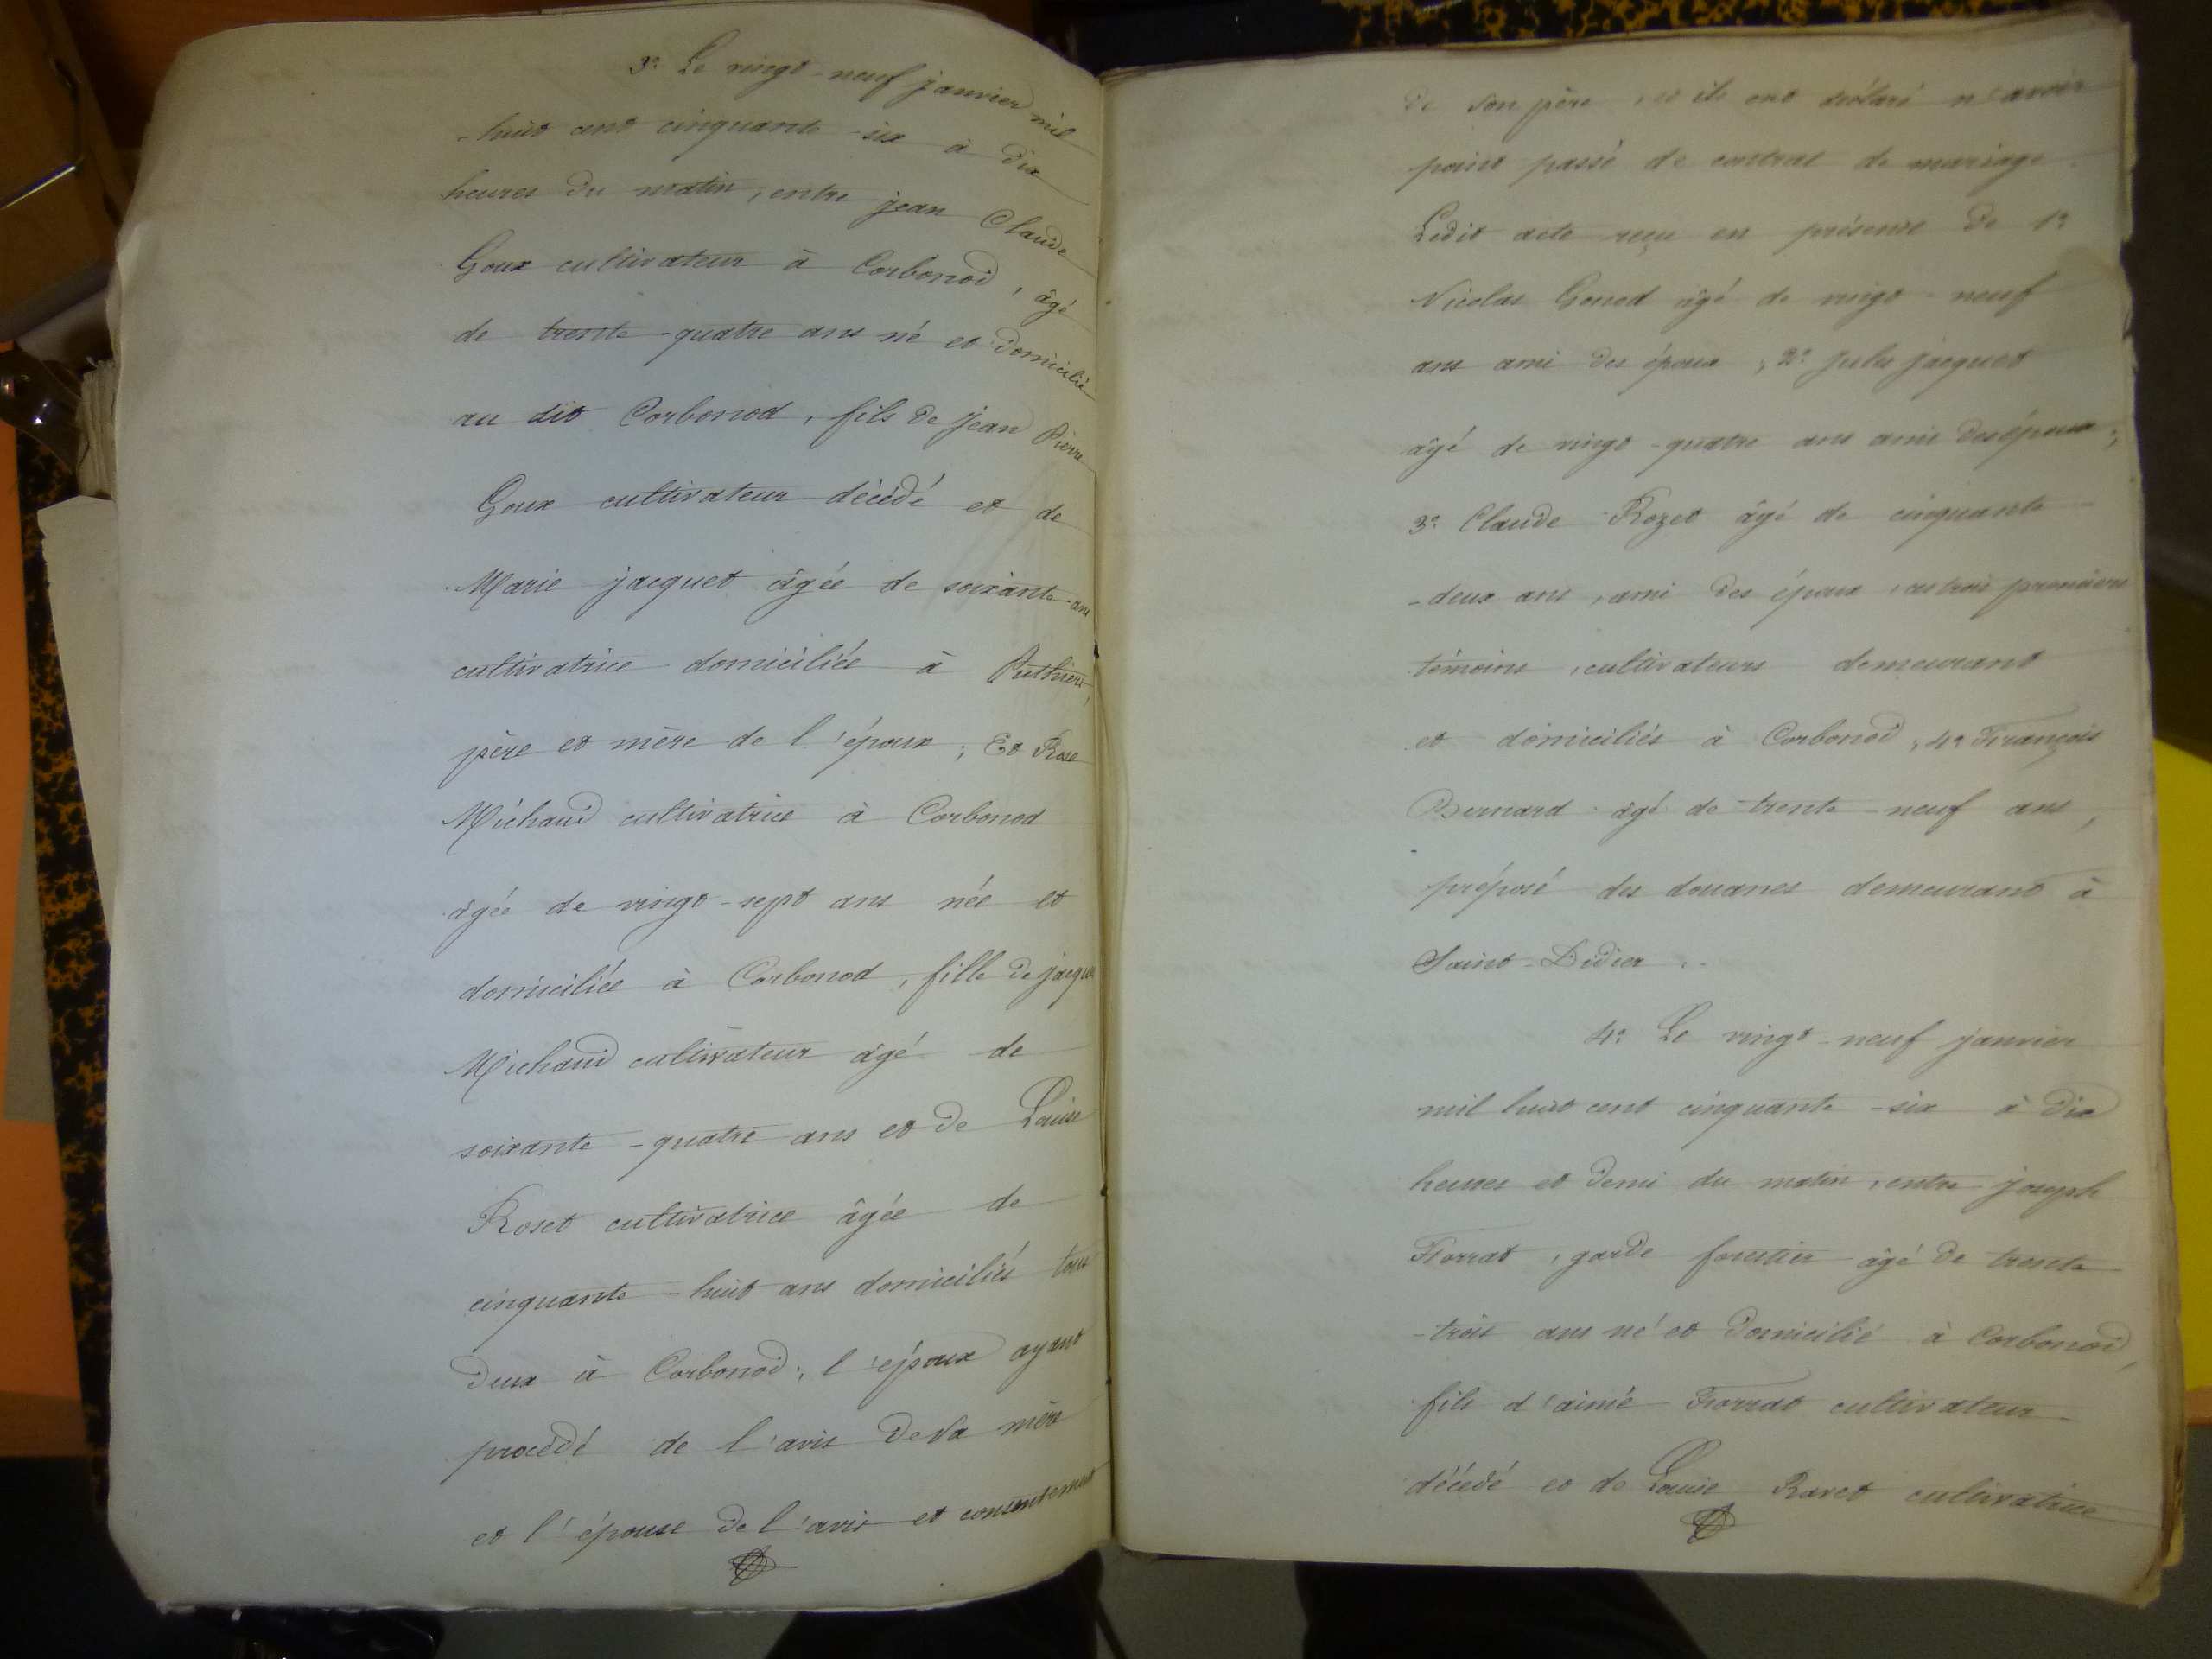 3º Le vingt-neuf janvier mil
-huit cent cinquante-six à dix
heures du matin, entre jean Claude
Goux cultivateur à Corbonod, âgé
de trente-quatre ans né et domicilié
au dit Corbonod, fils de jean Pierre
Goux cultivateur décédé et de
Marie jacquet âgée de soixante ans
cultivatrice domiciliée à Puthier,
père et mère de l'époux; Et Rose
Michaud cultivatrice à Corbonod
âgée de vingt-sept ans née et
domiciliée à Corbonod, fille de jacques
Michaud cultivateur âgé de
soixante-quatre ans et de Louise
Roset cultivatrice âgée de
cinquante-huit ans domiciliés tous
deux à Corbonod; l'époux ayant
procédé de l'avis de sa mère
et l'épouse de l'avis et consentement
de son père, et ils ont déclaré n'avoir
point passé de contrat de mariage.
Ledit acte reçu en présence de 1º
Nicolas Gonod âgé de vingt-neuf
ans ami des époux, 2º jules jacquet
âgé de vingt-quatre ans ami des époux;
3º Claude Rozet âgé de cinquante
-deux ans, ami des époux, ces trois premiers
témoins, cultivateurs demeurant
et domiciliés à Corbonod, 4º François
Bernard âgé de trente-neuf ans,
préposé des douanes demeurant à
Saint-Didier.
4º Le vingt-neuf janvier
mil huit cent cinquante-six à dix
heures et demi du matin, entre joseph
Forrat, garde forestier âgé de trente
-trois ans né et domicilié à Corbonod,
fils d'aimé Forrat cultivateur
décédé et de Louise Ravet cultivatrice